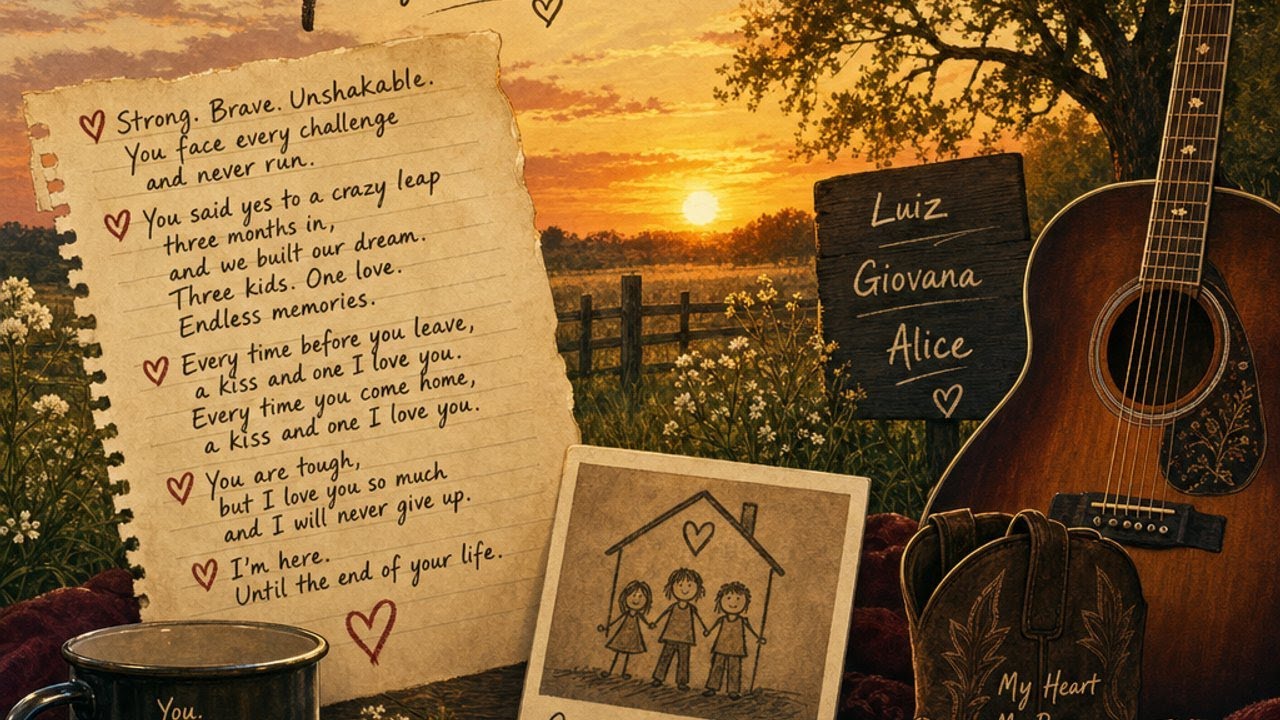 Strong. Brave. Unshakable.
You face every challenge
and never run.
You said yes to a crazy leap
three months in,
and we built our dream.
Three kids. One love.
Endless memories.
Every time before you leave,
a kiss and one I love you.
Every time you come home,
a kiss and one I love you.
You are tough,
but I love you so much
and I will never give up.
I'm here.
Until the end of your life.
Luiz
Giovana
Alice
You.
My Heart
My